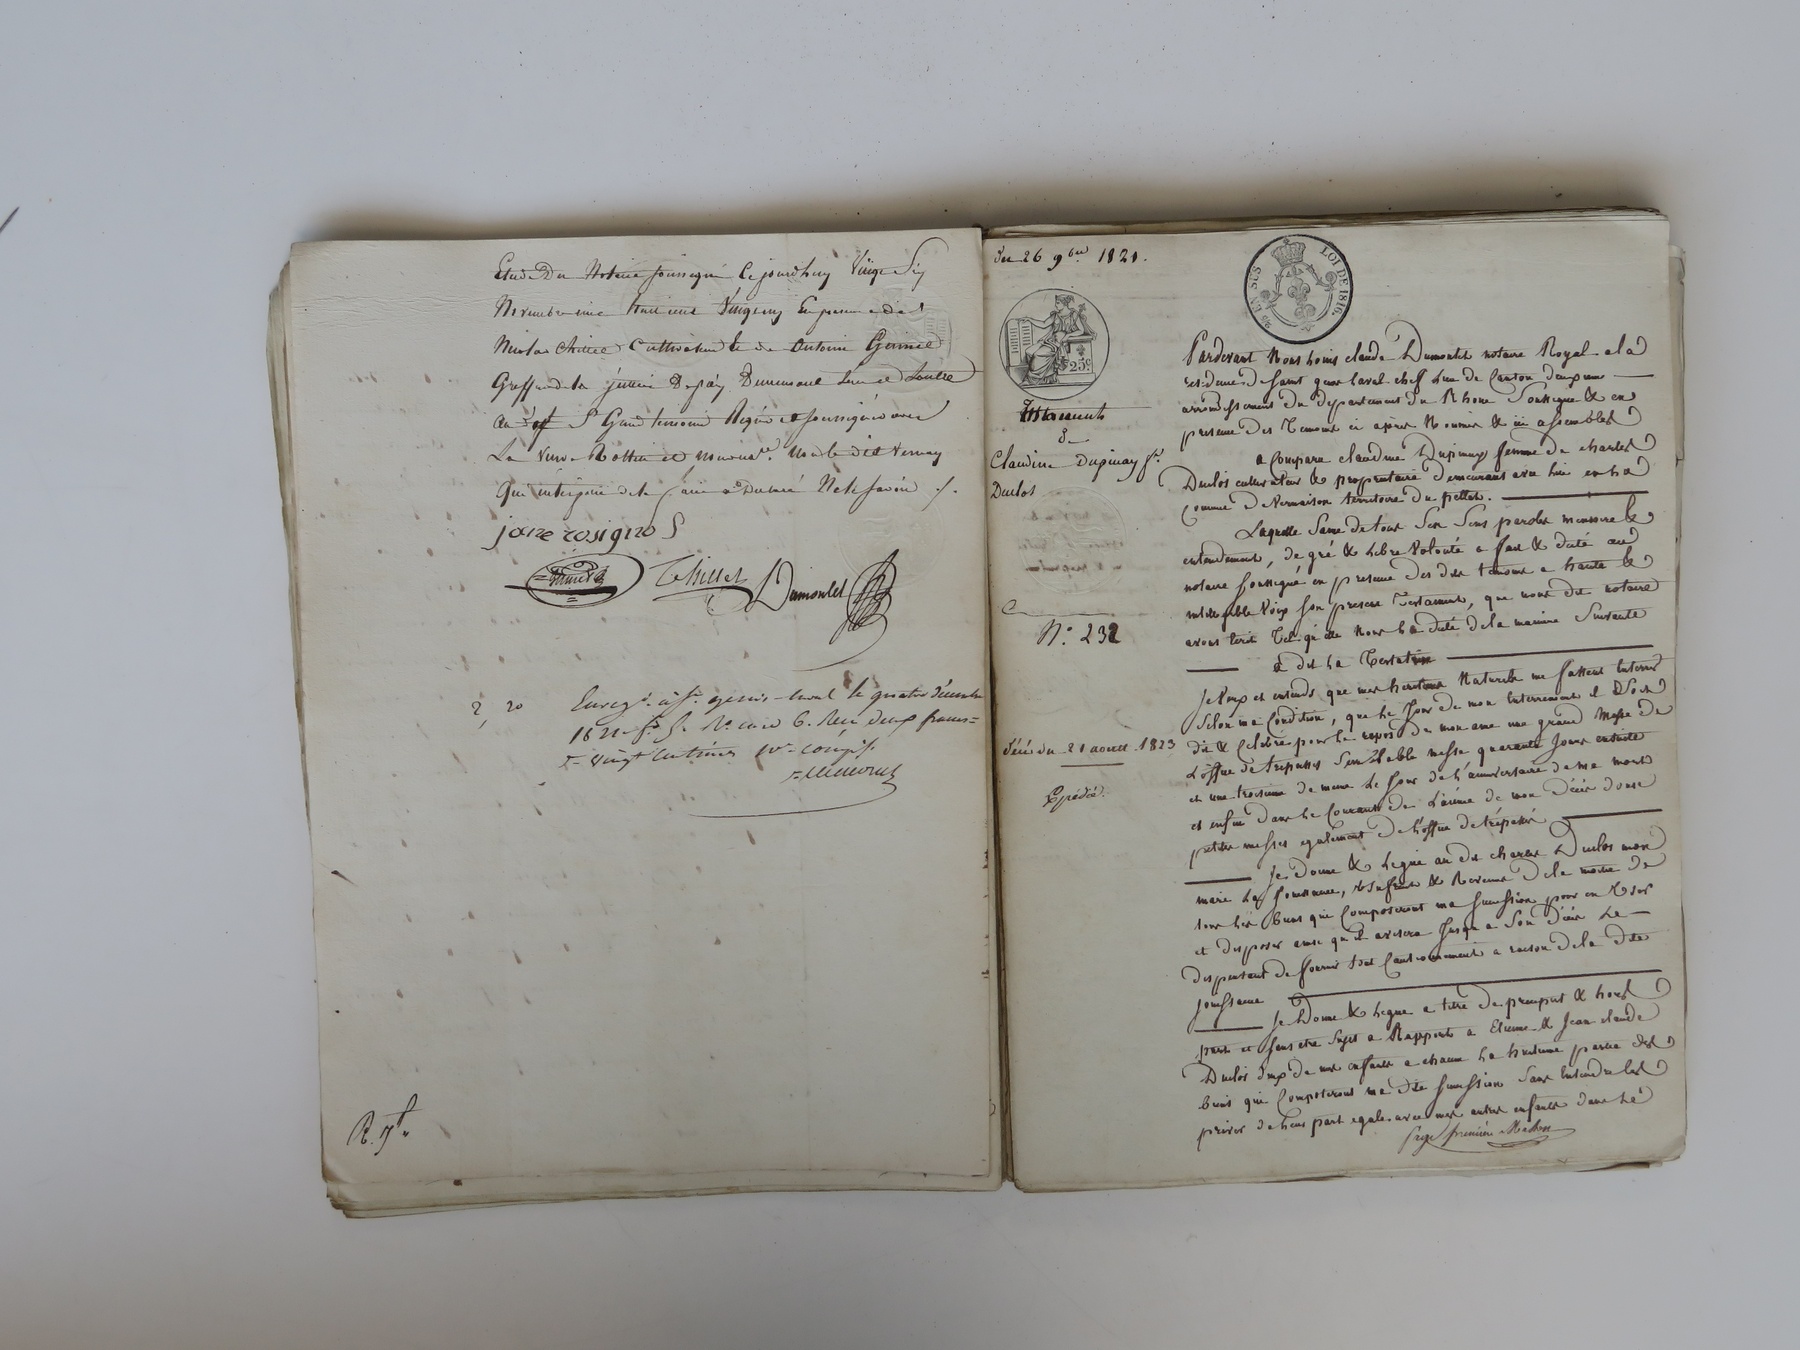 Etude Du Notaire soussigné Cejourdhuy Vingt Six
Novembre mil huit cent Vingt un En presence de
Nicolas Cultivateur & de Antoine
Greffier de la justice De paix Demeurant
au St Genis temoins Requis & soussignés avec
La Verve non le dit Vernay
qui interpellé de le faire a Declaré Ne le savoir ./.
jone rosignol
Thillet
Dumontet
2, 20
Enreg. à St. genis-laval le quatre décembre
1821 f. 5 R. case 6. Reçu deux francs =
= vingt centimes Dme compis.
R. 7f "
Du 26 9bre 1821.
EN SUS
LOI DE 1816.
25c
Testament
De
Claudine Dupinay fe.
Duclos
N.º 232
Décé du 21 aout 1823
Expédié.
Pardevant Nous Louis claude Dumontet notaire Royal a la
residence de Saint genis laval chef Lieu de Canton deuxieme
arrondissement du departement du Rhone Soussigné & en
presence des Temoins ci après Nommés & ici assemblés
a Comparu claudine Dupinay femme de charles
Duclos cultivateur & propriétaire demeurant avec lui en la
Commune de vernaison territoire du pellet.
Laquelle Saine de tous Ses Sens parole memoire &
entendement, de gré & Libre Volonté a fait & dicté au
notaire soussigné en presence des dits temoins a haute &
intelligible Voix son present Testament, que nous dit notaire
avons écrit Tel qu'elle Nous l'a dicté de la maniere Suivante
a dit La Testatrice
Je veux et entends que mes heritiers Naturels me fassent Enterrer
Selon ma Condition, que Le Jour de mon Enterrement il Soit
dit & Celebré pour le repos de mon ame une grand Messe de
L'office de trepassés Semblable messe quarante Jours ensuite
et une troisieme de meme Le Jour de l'anniversaire de ma mort
et enfin dans Le Courant de L'année de mon Décès douze
petites messes egalement de L'office de trépassés
Je Donne & Legue au dit charles Duclos mon
mari La Jouissance, Usufruit & Revenus de la moitié de
tous Les biens qui Composeront ma succession pour en User
et disposer ainsi qu'il avisera Jusqu'a Son Décès Le
dispensant de fournir Cautionnement a raison de la dite
Jouissance
Je Donne & Legue a titre de preciput & hors
part et sans etre Sujet a Rapport a Etienne & Jean claude
Duclos deux de mes enfants a chacun La huitieme partie des
biens qui Composeront ma dite succession Sans Entendre les
priver de Leur part egale avec mes autres enfants dans Le
page premiere